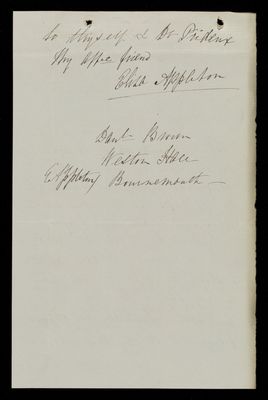 to thyself & Dr Prideux
Thy affte friend
Eliza Appleton
Aunt Brown
Weston Hall
E. Appleton Bournemouth